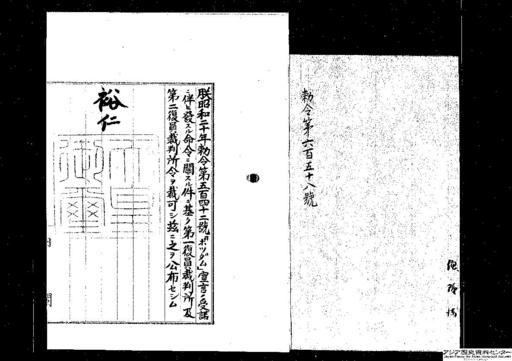 勅令第六百五十八號
朕昭和二十年勅令第五百四十二號「ポツダム」宣言ノ受諾
ニ伴ヒ發スル命令ニ關スル件ニ基ク第一復員裁判所及
第二復員裁判所令ヲ裁可シ玆ニ之ヲ公布セシム
裕仁
天皇御璽
内閣
アジア歴史資料センター